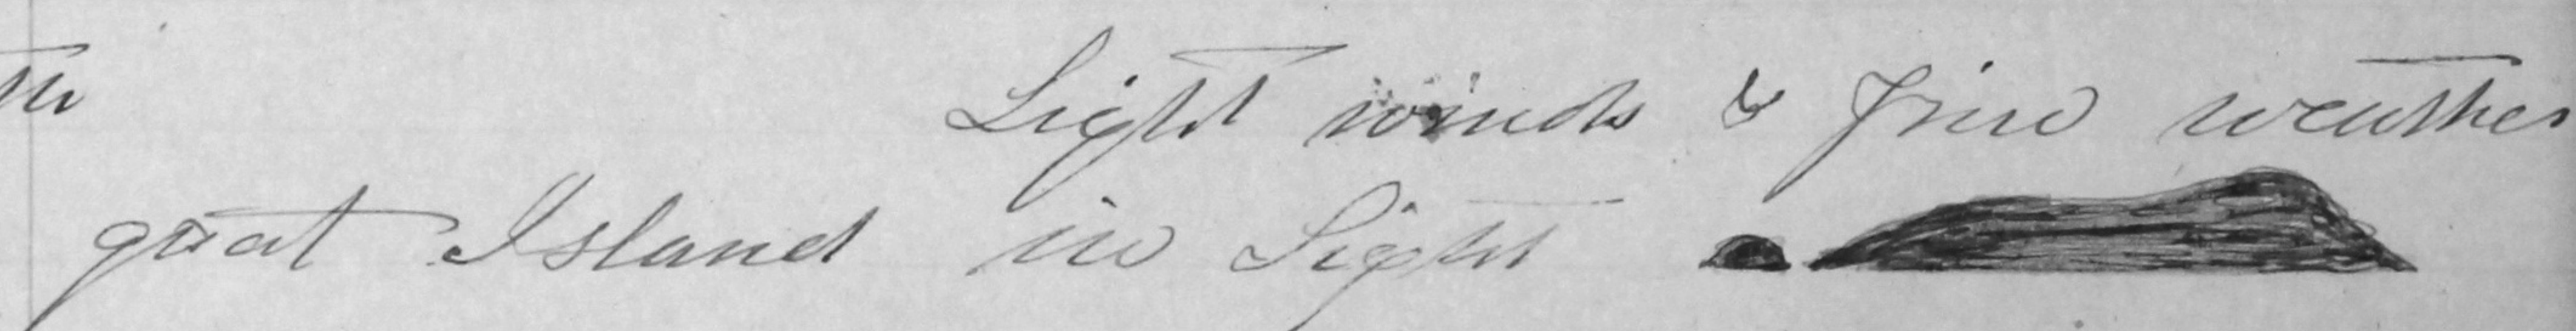 th Light winds & fine weather
great Island in Sight